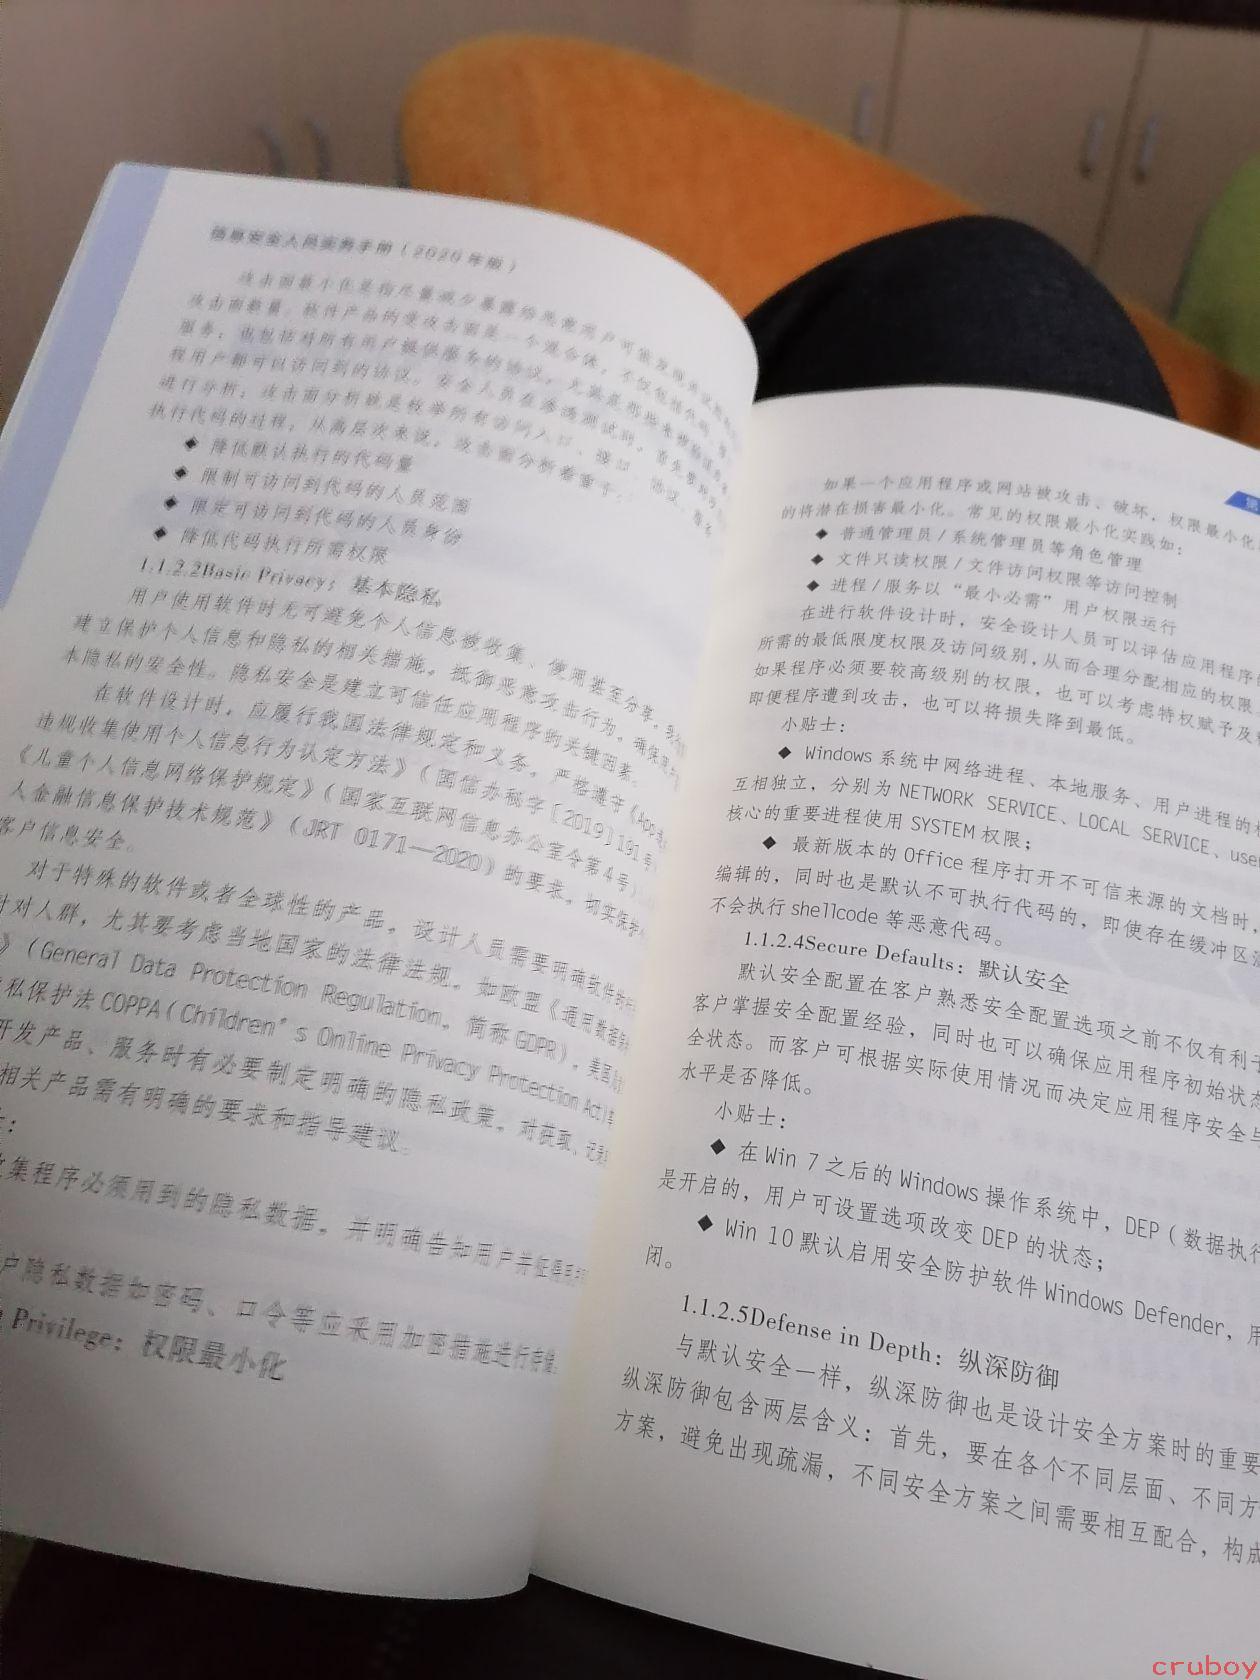 信息安全人员实务手册（2020年版）
攻击面最小化是指尽量减少暴露给恶意用户可能发现并试图
攻击面数量。软件产品的受攻击面是一个混合体，不仅包括代码、
服务，也包括对所有用户提供服务的协议，尤其是那些未
程用户都可以访问到的协议。安全人员在渗透测试时，首先要对
进行分析，攻击面分析就是枚举所有访问入口、接口、协议、
执行代码的过程，从高层次来说，攻击面分析着重于：
◆ 降低默认执行的代码量
◆ 限制可访问到代码的人员范围
◆ 限定可访问到代码的人员身份
◆ 降低代码执行所需权限
1.1.2.2Basic Privacy：基本隐私
用户使用软件时无可避免个人信息被收集、使用甚至分享，
建立保护个人信息和隐私的相关措施，抵御恶意攻击行为，确保
本隐私的安全性。隐私安全是建立可信任应用程序的关键因素。
在软件设计时，应履行我国法律规定和义务，严格遵守《App
违规收集使用个人信息行为认定方法》（国信办秘字［2019］191号
《儿童个人信息网络保护规定》（国家互联网信息办公室令第4号）
人金融信息保护技术规范》（JRT 0171—2020）的要求，切实保护
客户信息安全。
对于特殊的软件或者全球性的产品，设计人员需要明确软件的
对人群，尤其要考虑当地国家的法律法规，如欧盟《通用数据保
》（General Data Protection Regulation，简称GDPR），美国
私保护法COPPA（Children’s Online Privacy Protection Act）
开发产品、服务时有必要制定明确的隐私政策，对获取、记录
相关产品需有明确的要求和指导建议。
：
集程序必须用到的隐私数据，并明确告知用户并征得同
户隐私数据如密码、口令等应采用加密措施进行存储。
Privilege：权限最小化
第
如果一个应用程序或网站被攻击、破坏，权限最小化
的将潜在损害最小化。常见的权限最小化实践如：
◆ 普通管理员/系统管理员等角色管理
◆ 文件只读权限/文件访问权限等访问控制
◆ 进程/服务以“最小必需”用户权限运行
在进行软件设计时，安全设计人员可以评估应用程序
所需的最低限度权限及访问级别，从而合理分配相应的权限
如果程序必须要较高级别的权限，也可以考虑特权赋予及
即便程序遭到攻击，也可以将损失降到最低。
小贴士：
◆ Windows系统中网络进程、本地服务、用户进程的权
互相独立，分别为NETWORK SERVICE、LOCAL SERVICE、user
核心的重要进程使用SYSTEM权限；
◆ 最新版本的Office程序打开不可信来源的文档时，
编辑的，同时也是默认不可执行代码的，即使存在缓冲区溢
不会执行shellcode等恶意代码。
1.1.2.4Secure Defaults：默认安全
默认安全配置在客户熟悉安全配置选项之前不仅有利于
客户掌握安全配置经验，同时也可以确保应用程序初始状态
全状态。而客户可根据实际使用情况而决定应用程序安全与
水平是否降低。
小贴士：
◆ 在Win 7之后的Windows操作系统中，DEP（数据执行
是开启的，用户可设置选项改变DEP的状态；
◆ Win 10默认启用安全防护软件Windows Defender，用
闭。
1.1.2.5Defense in Depth：纵深防御
与默认安全一样，纵深防御也是设计安全方案时的重要
纵深防御包含两层含义：首先，要在各个不同层面、不同方
方案，避免出现疏漏，不同安全方案之间需要相互配合，构成
cruboy